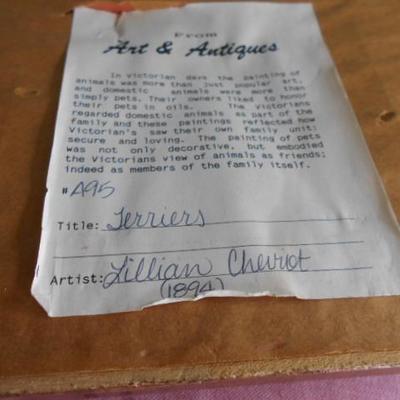 From
Art & Antiques
In Victorian days the painting of
animals was more than just popular art,
and domestic animals were more than
simply pets. Their owners liked to honor
their pets in oils. The Victorians
regarded domestic animals as part of the
family and these paintings reflected how
Victorian's saw their own family unit:
secure and loving. The painting of pets
was not only decorative, but embodied
the Victorians view of animals as friends;
indeed as members of the family itself.
#A95
Title: Terriers
Artist: Lillian Cheviot
(1894)